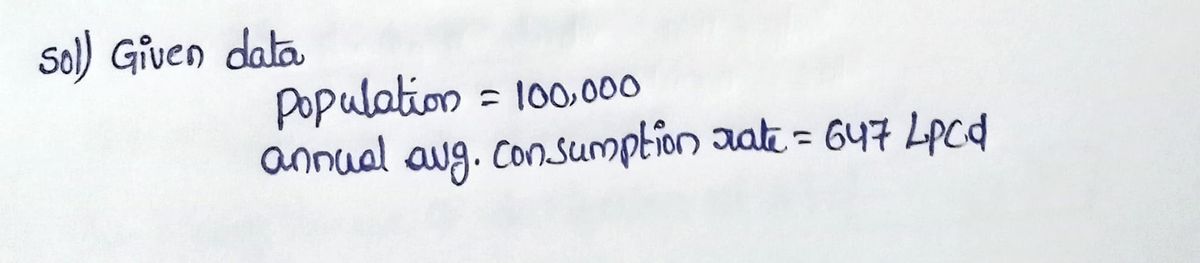 Sol) Given data
Population = 100,000
annual avg. consumption rate = 647 Lpcd